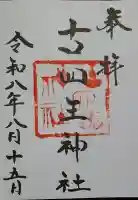 奉拝
古四王神社
令和八年八月十五日